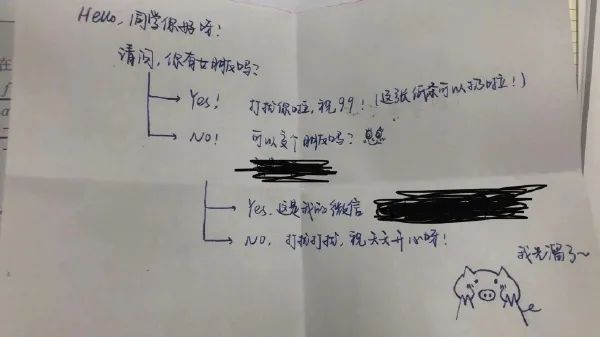 Hello, 同学你好呀!
请问, 你有女朋友吗?
Yes! 打扰你啦, 祝99! (这张纸条可以扔啦!)
NO! 可以交个朋友吗?
Yes, 这是我的微信
NO, 打扰打扰, 祝天天开心呀!
我先溜了~
在